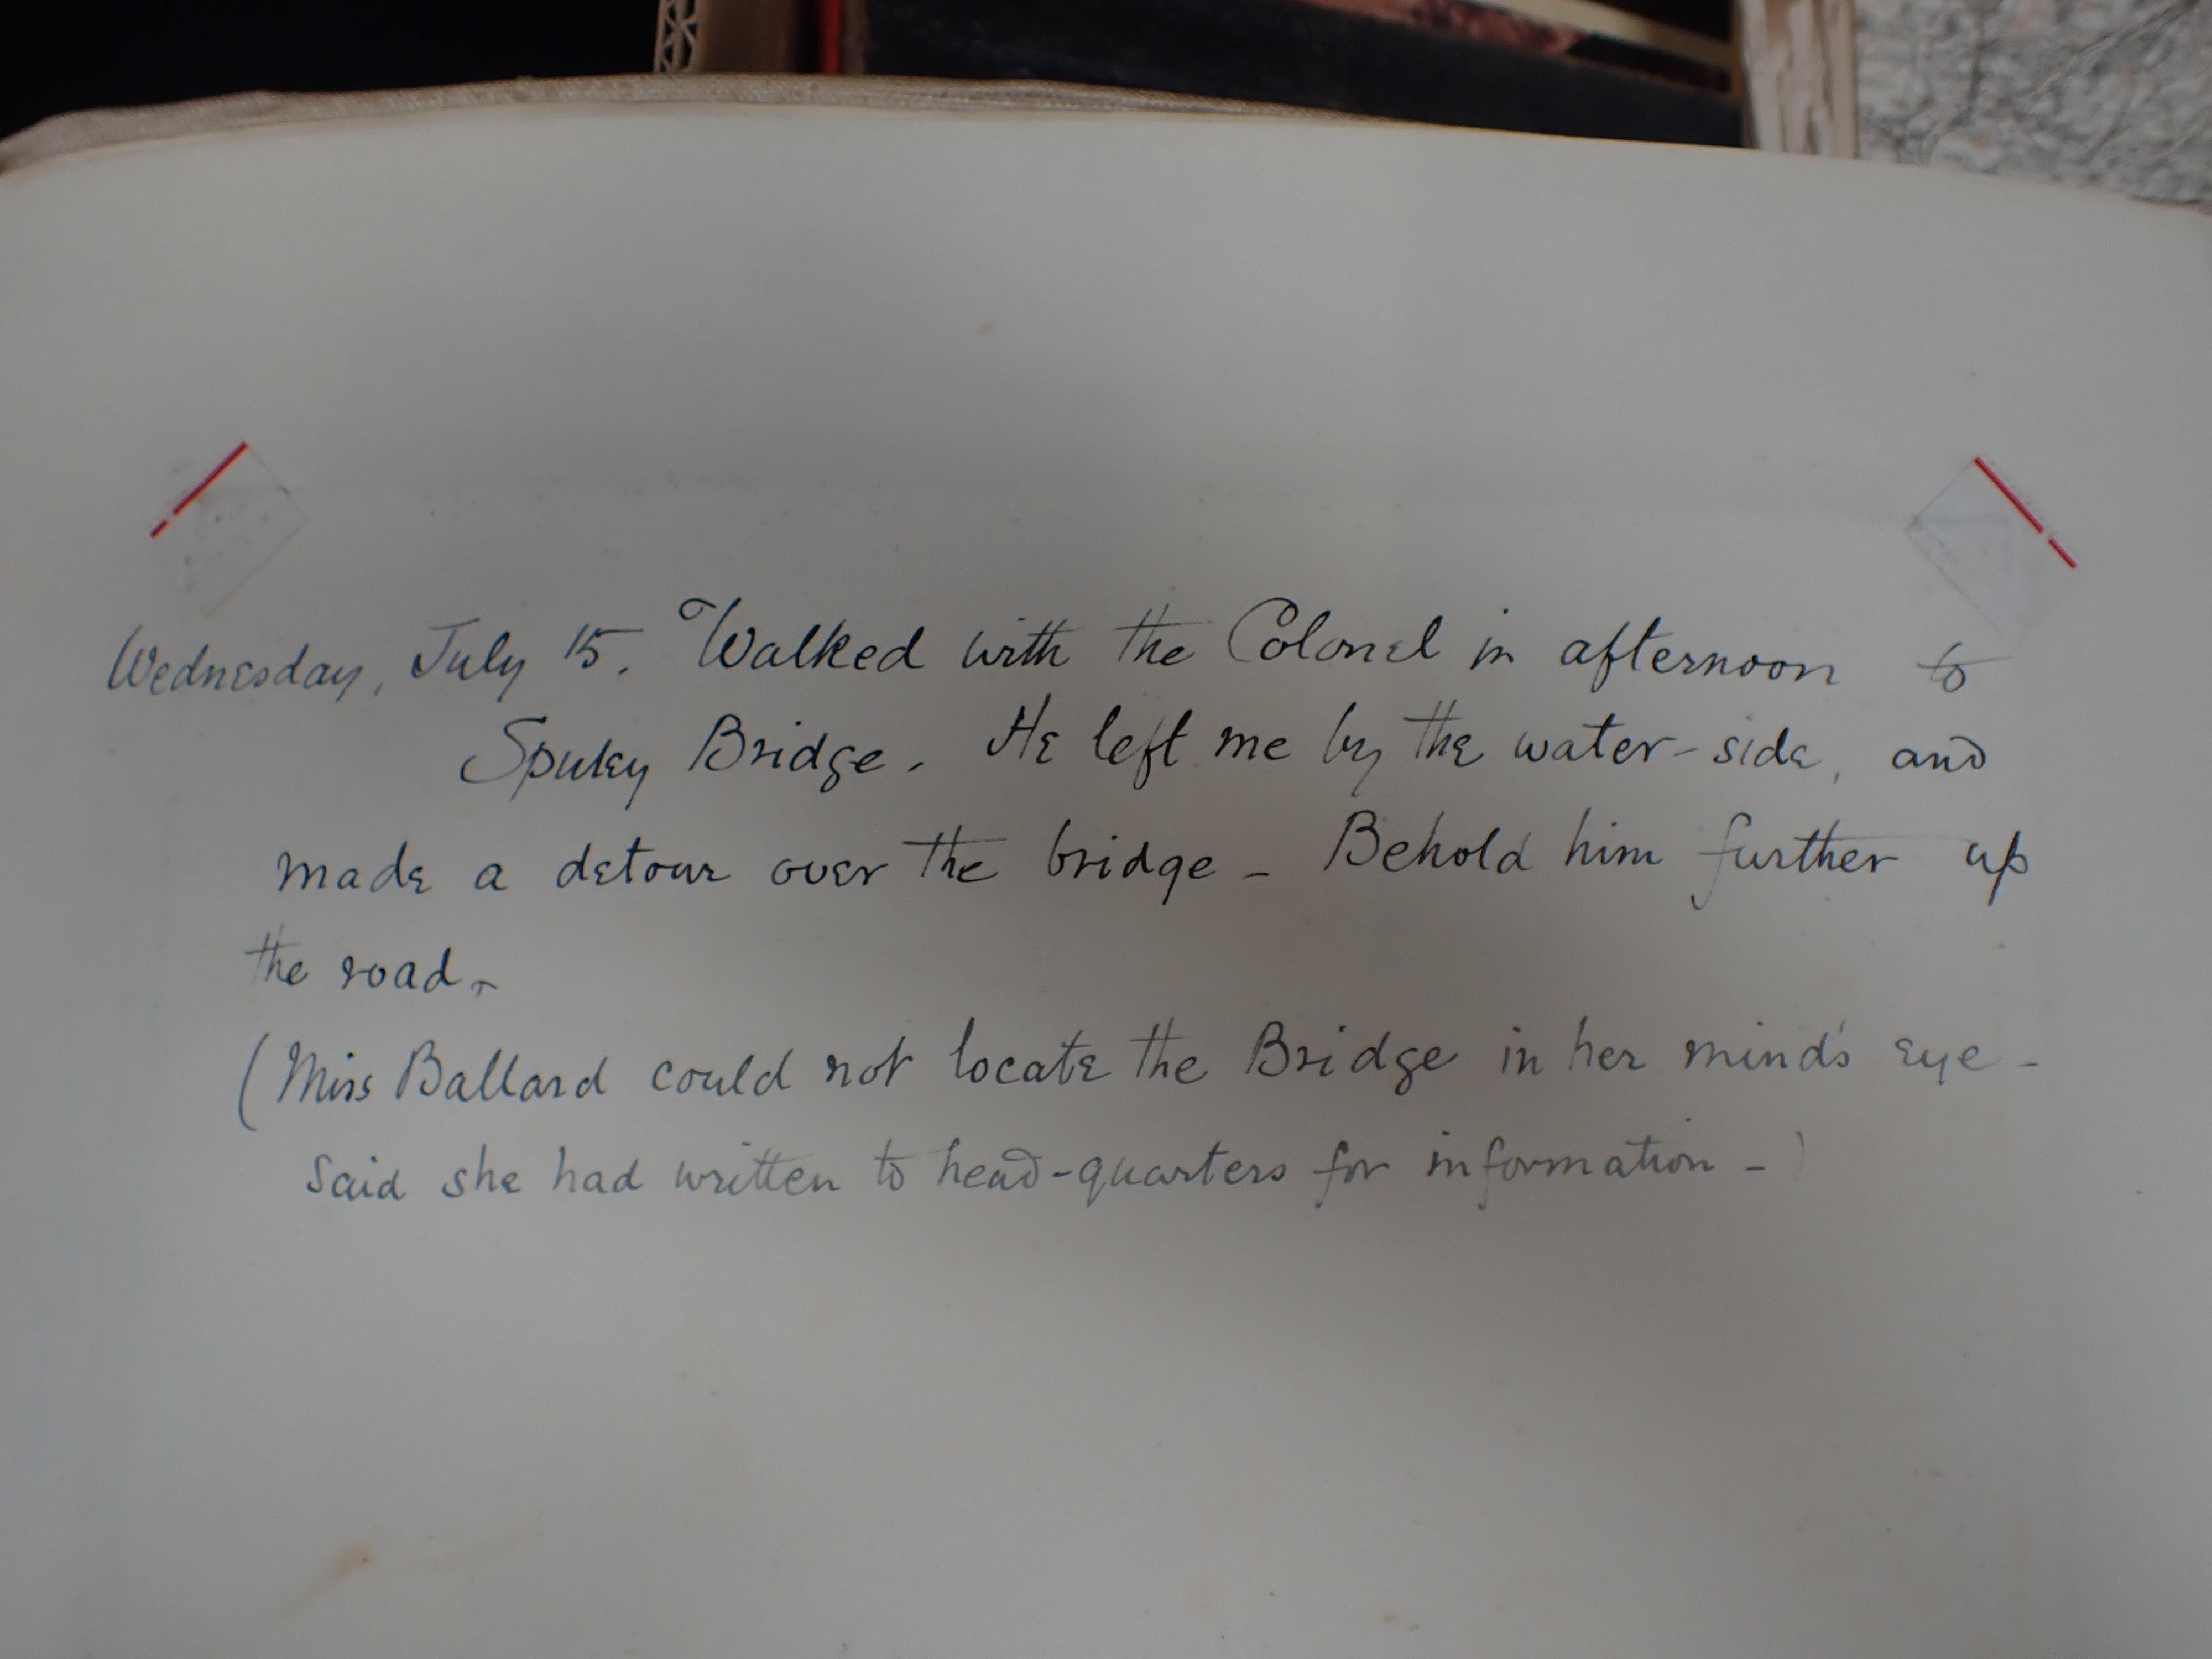 Wednesday, July 15. Walked with the Colonel in afternoon to
Spuky Bridge. He left me by the water-side, and
made a detour over the bridge - Behold him further up
the road.
(Miss Ballard could not locate the Bridge in her mind's eye -
said she had written to head-quarters for information -)